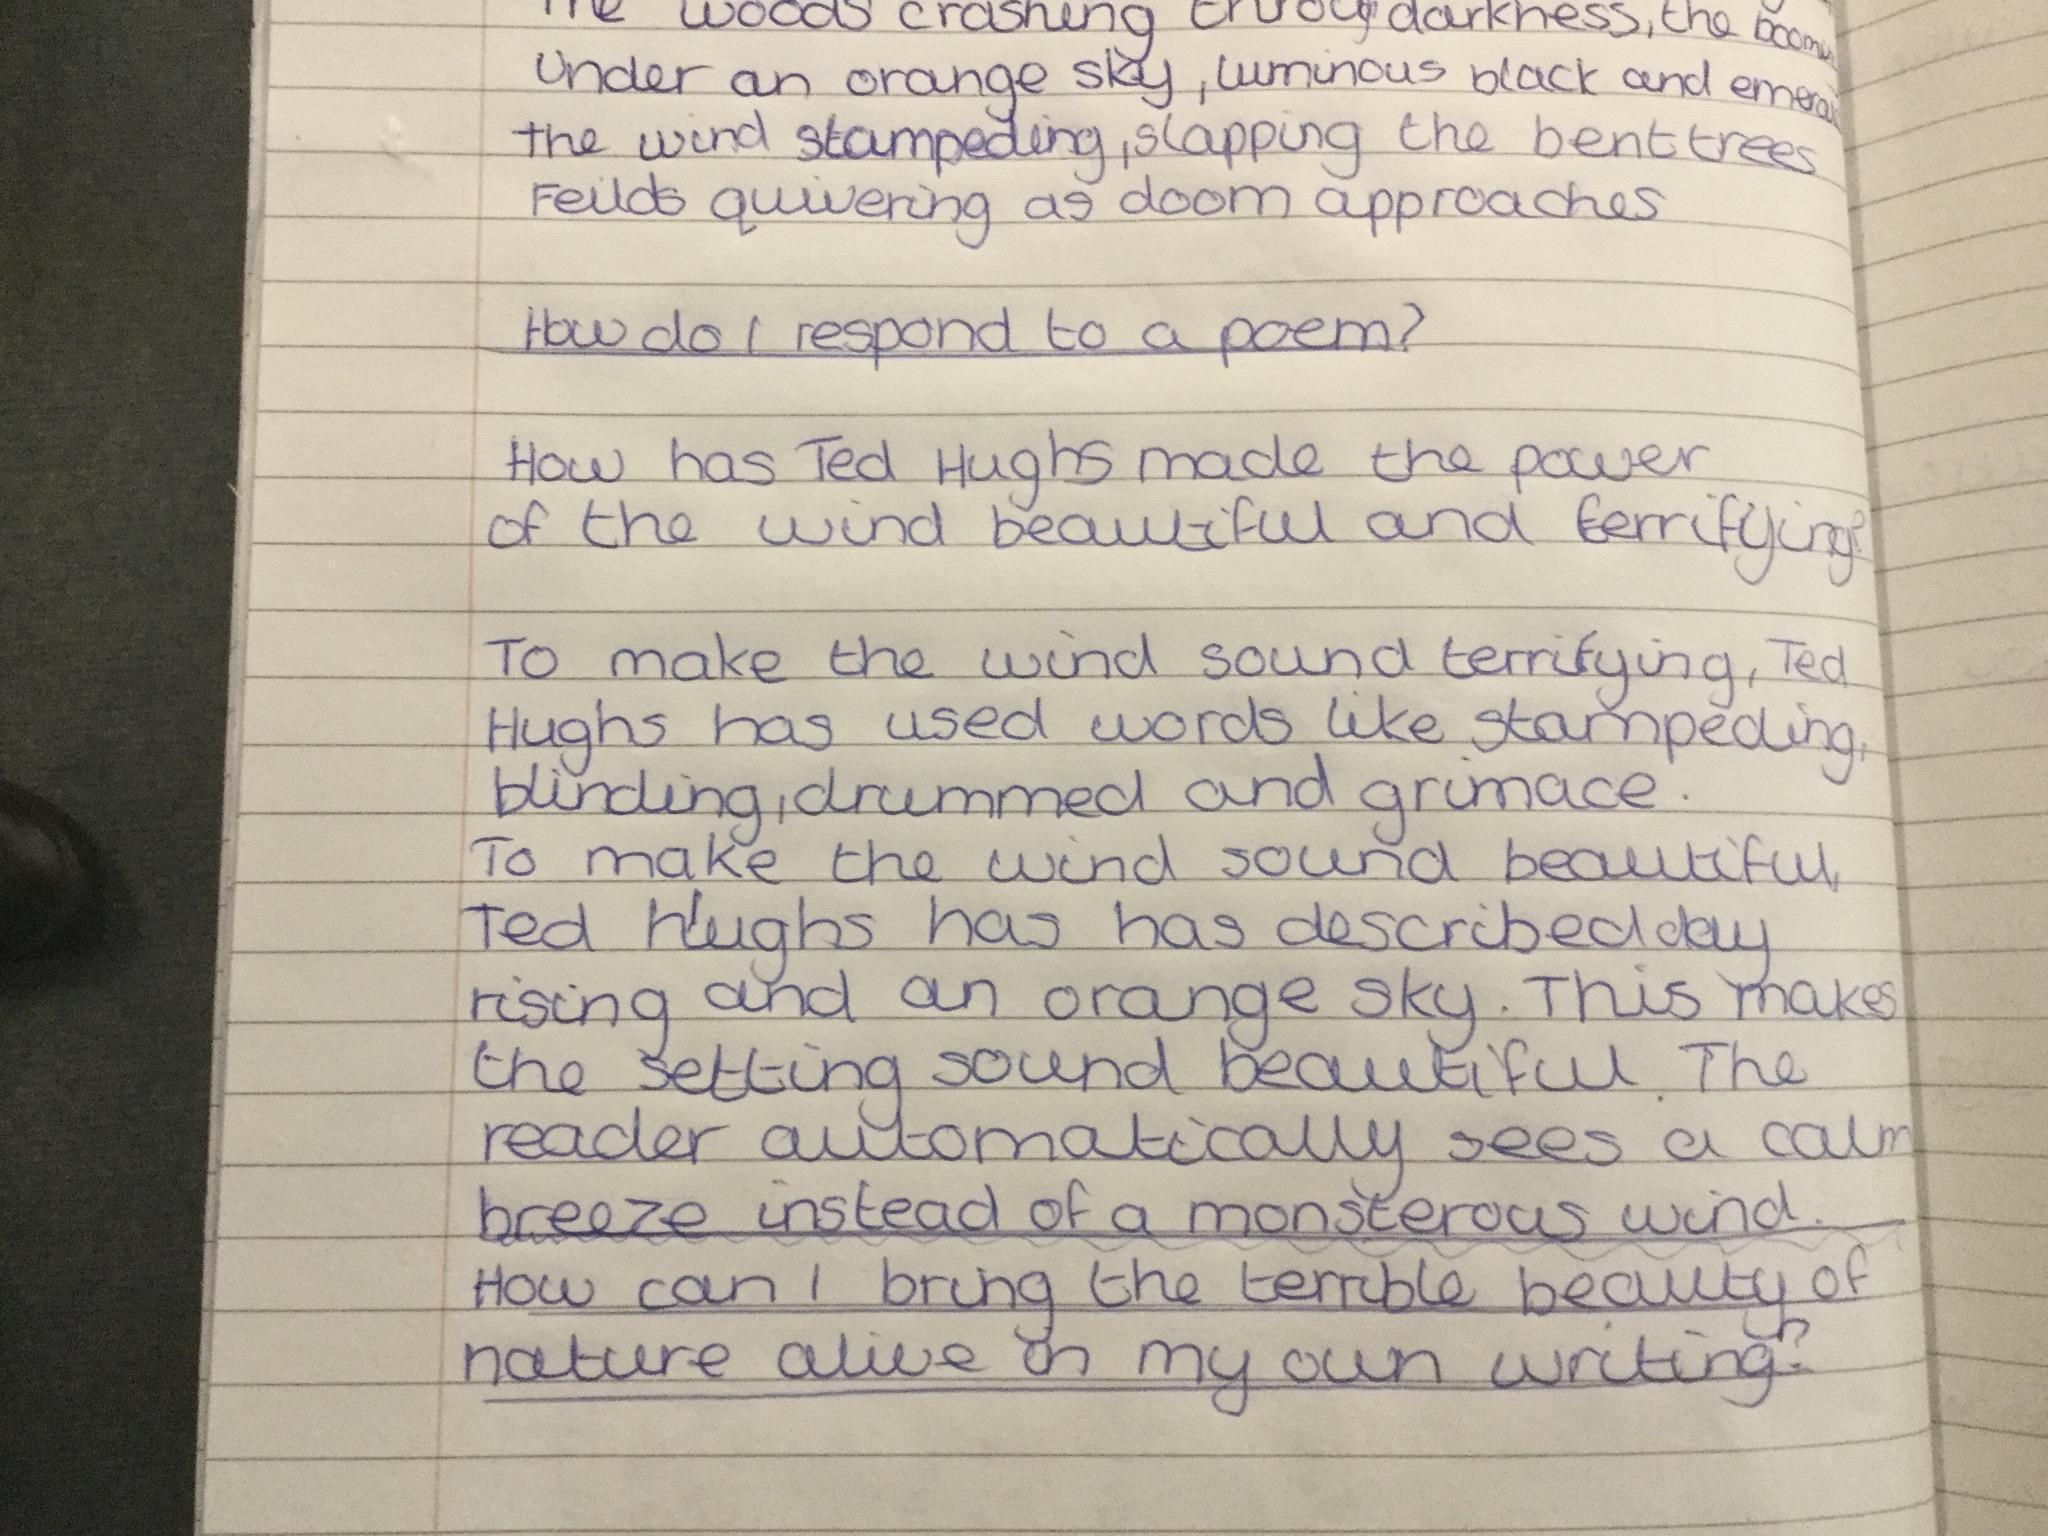 The woods crashing through darkness, the
Under an orange sky, luminous black and
the wind stampeding, slapping the bent trees
Feilds quivering as doom approaches
How do I respond to a poem?
How has Ted Hughs made the power
of the wind beautiful and terrifying?
To make the wind sound terrifying, Ted
Hughs has used words like stampeding,
blinding, drummed and grimace.
To make the wind sound beautiful,
Ted Hughs has has described day
rising and an orange sky. This makes
the setting sound beautiful. The
reader automatically sees a calm
breeze instead of a monsterous wind.
How can I bring the terrible beauty of
nature alive in my own writing?